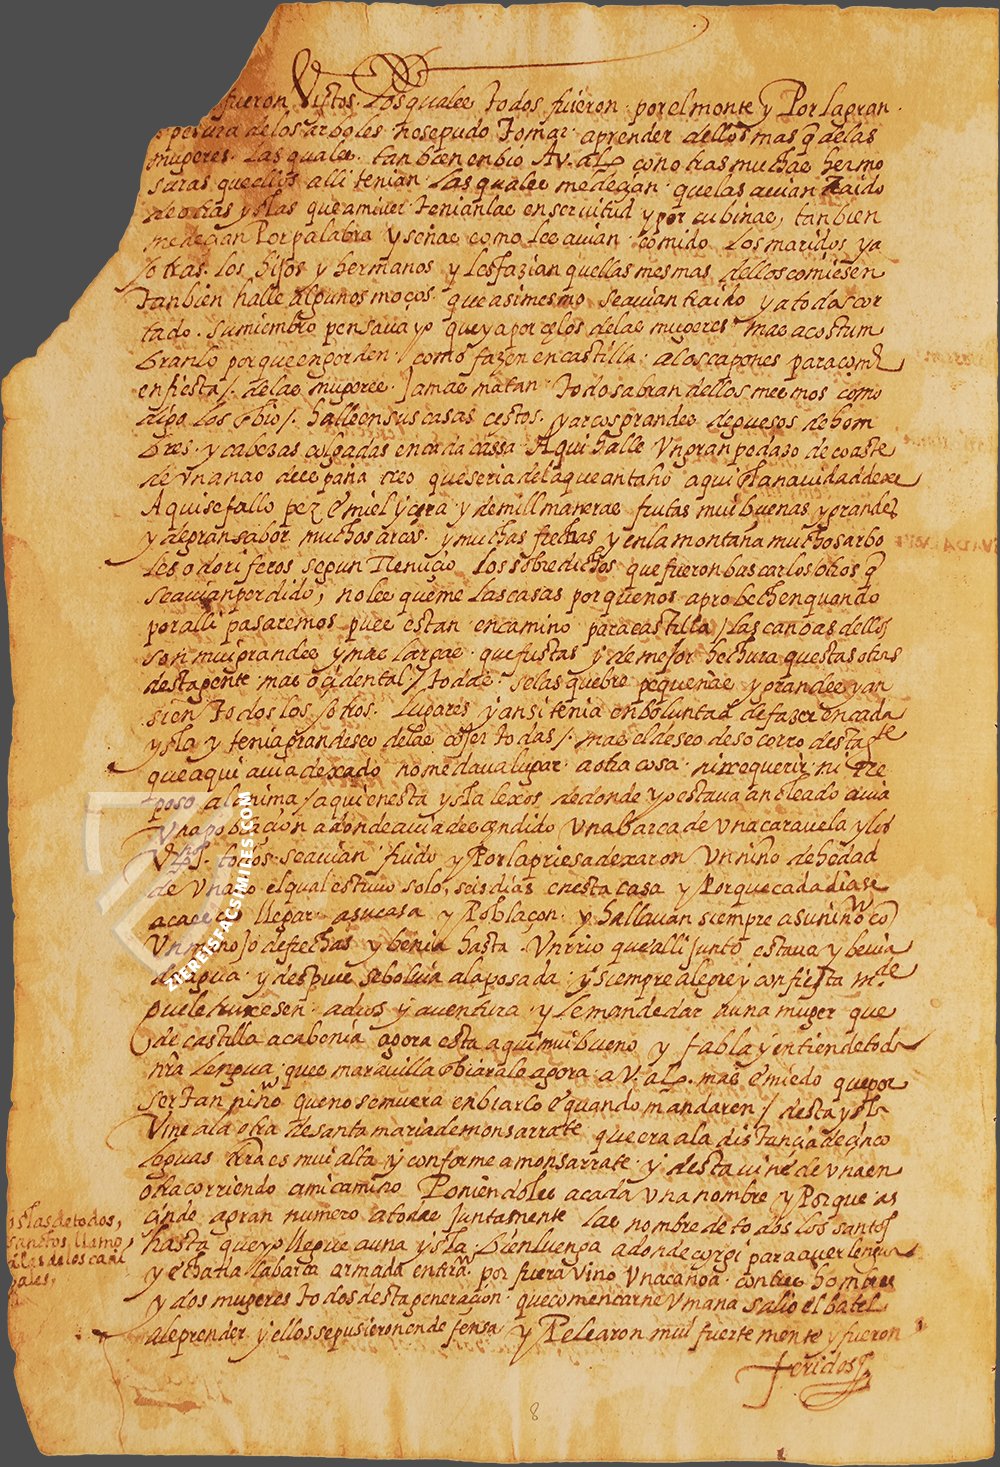 fueron Vistos. Los quales todos fueron por el monte y Por la gran
espesura de los arboles no se pudo tomar aprender dellos mas q̃ de las
mugeres. Las quales tanbien enbio A v. al. con otras muchas hermo
suras que ellos alli tenian. las quales me dezian que las avian traido
de otras yslas que a mi ver tenianlas en servitud y por cubinas, tanbien
me dezian Por palabra y señas como les avian comido los maridos ya
otras los hijos y hermanos y les fazian quellas mesmas dellos comiesen
tanbien halle algunos moços que asi mesmo se avian traido y a todos cor
tado su miembro pensava yo que ya por çelos de las mugeres mas acostum
branlo por que engorden / como fazen en castilla a los capones para comer
en fiesta /. de las mugeres Jamas matan
halle en sus casas cestos y arcos grandes de guesos de hom
bres y cabezas colgadas en cada cassa Aqui halle Un gran pedaso de coaste
de Una nao de españa creo que seria de la que antaño aqui la navidad dexe
Aqui se fallo pez e miel y cera y de mill maneras frutas mui buenas y grandes
y de gran sabor muchos arcos y muchas flechas y en la montaña muchos arbo
les odoriferos los sobre dichos que fueron buscar los otros q̃
se avian perdido, no les queme Las casas por que nos aprobechen quando
por alli pasaremos pues estan en camino para castilla / las canoas dellos
son mui grandes y mas largas que fustas y de mejor hechura questas otras
desta gente mas ocidental / todas se las quebre pequeñas y grandes y an
si en todos los otros lugares y ansi tenia en boluntad de fazer en cada
ysla y tenia gran deseo de las cojer todas /. mas el deseo de socorro desta gte
que aqui avia dexado no me dava lugar a otra cosa ni requerir ni re
poso al anima / aqui en esta ysla lexos de donde yo estava ancleado avia
Una poblacion a donde avia decendido Una barca de Una caravela y los
todos se avian fuido y Por la priesa dexaron Un niño de hedad
de Un año el qual estuvo solo, seis dias en esta casa y Por que cada dia se
acaecio llegar a su casa y Poblaçon y hallavan siempre a su niño co
Un manojo de frechas y benia hasta Un rrio que alli junto estava y bevia
de agua y despues se bolvia a la posada y siempre alegre y con fiesta mde
que le truxesen a dios y aventura y le mande dar a una muger que
de castilla aca benia agora esta aqui mui bueno y fabla y entiende toda
nr̃a Lengua que es maravilla agora a V. al. mas e miedo que por
ser tan niño que no se muera enbiarlo e quando mandaren / desta ysla
Vine a la otra de santa maria de monsarrate que era a la distancia de çinco
leguas tr̃ra es mui alta y conforme a monsarrate y desta vine de Una en
otra corriendo a mi camino Poniendoles a cada Una nombre y Por que as
ciende a gran numero a todas Juntamente las nombre de todos los santos
hasta que yo llegue a una ysla bien luenga a donde cogi para aver lengua
y echada la barca armada en tierra por fuera vino Una canoa con tres hombres
y dos mugeres todos desta generaçion que comen carne Umana salio el batel
a les prender y ellos se pusieron en defensa y Pelearon mui fuerte mente y fueron
feridos
yslas de todos,
sanctos, llamo
a las de los cani
bales,
8
ZIEREISFACSIMILES.COM